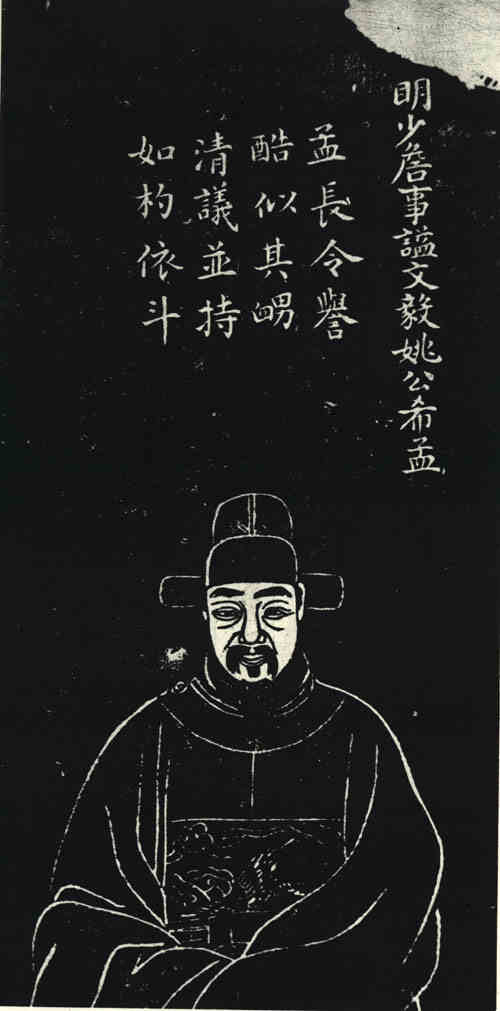 明少詹事謚文毅姚公希孟
孟長令譽
酷似其甥
清議並持
如杓依斗